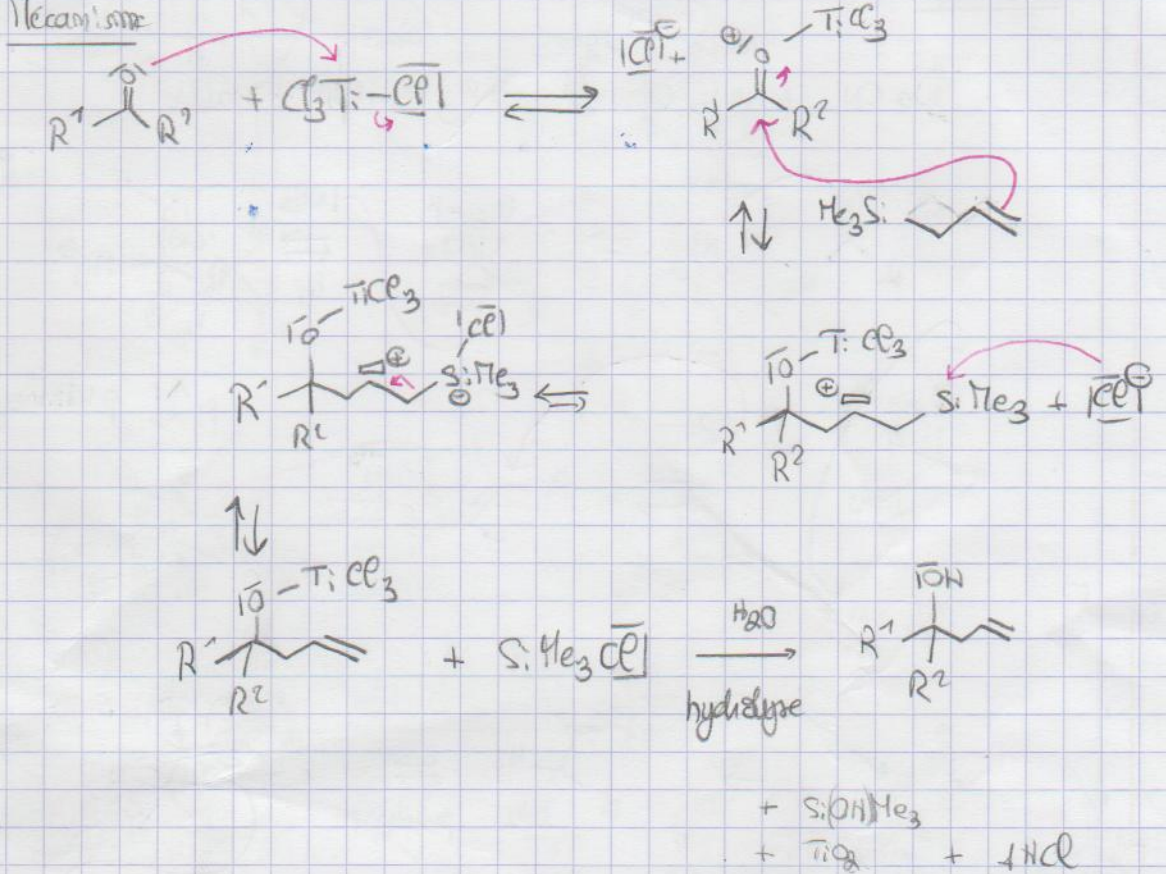 Mécanisme
O R¹ R² + Cl₃Ti–Cl ⇌ Cl⊖ + ⊕O–TiCl₃ R¹ R²
Me₃Si
O–TiCl₃ R¹ R² ⊕ Cl SiMe₃ ⊖ ⇌ O–TiCl₃ R¹ R² ⊕ SiMe₃ + Cl⊖
O–TiCl₃ R¹ R² + SiMe₃Cl → H₂O hydrolyse OH R¹ R²
+ Si(OH)Me₃
+ TiO₂ + 4HCl